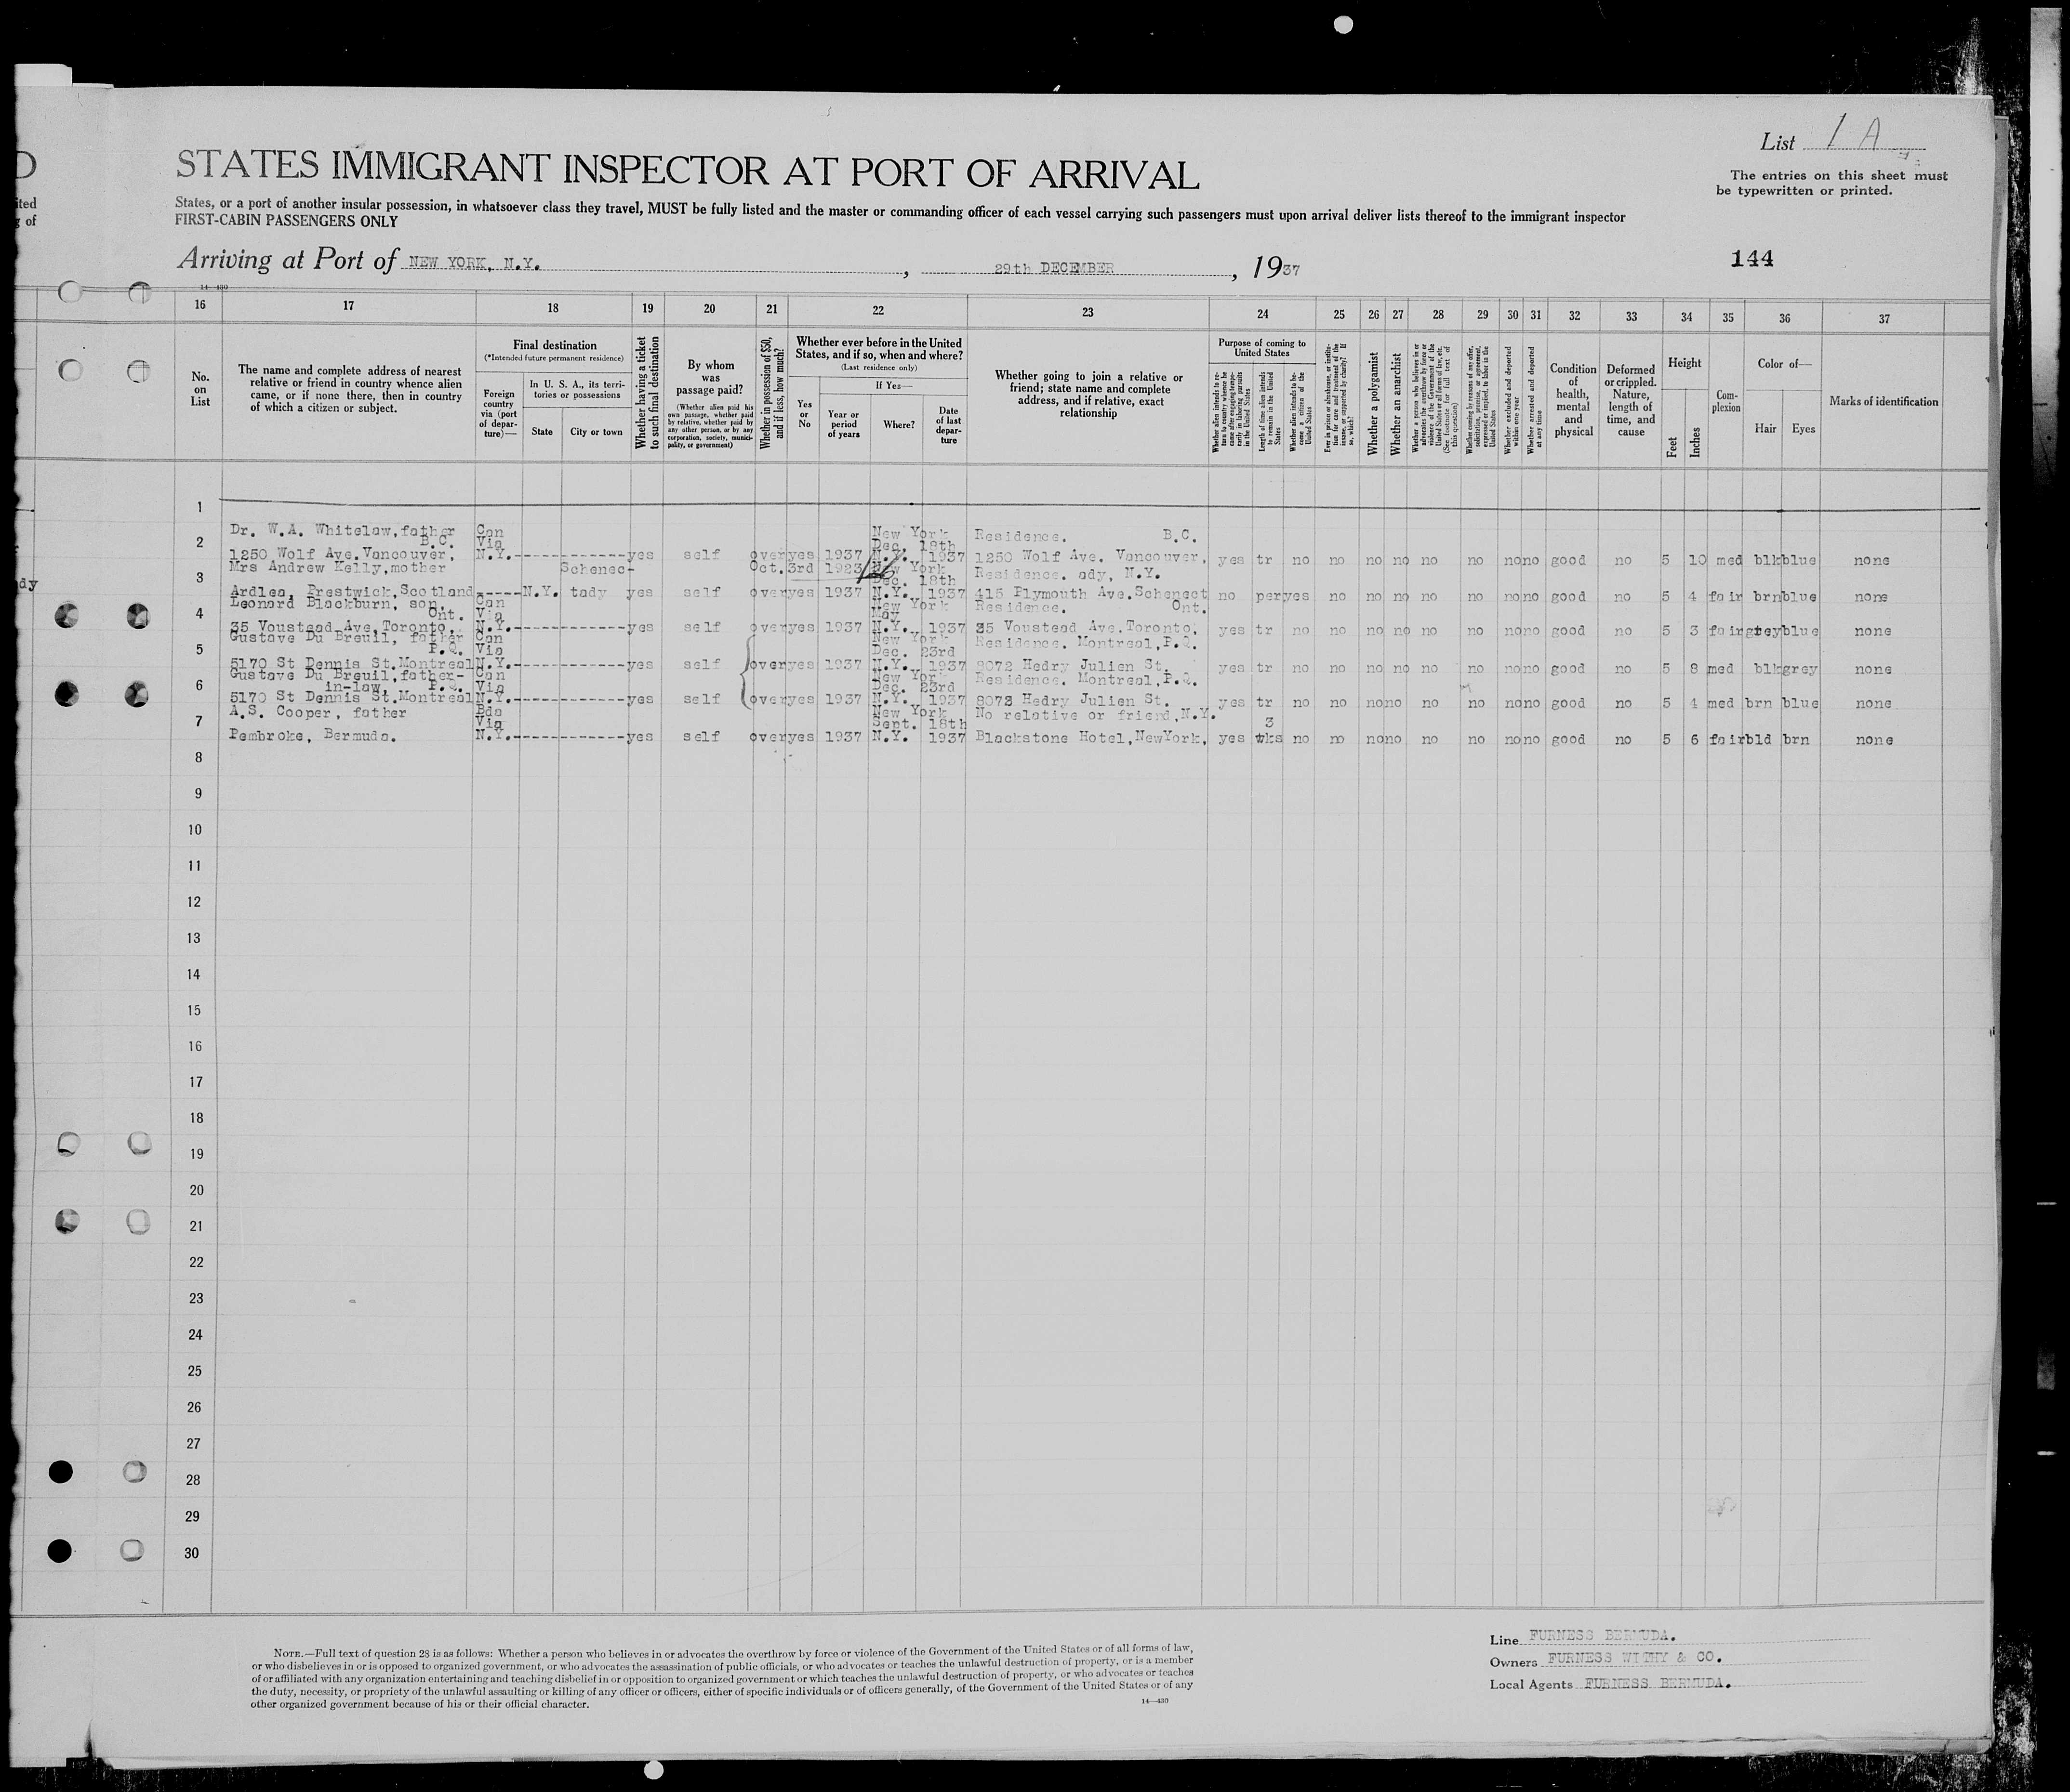 List 1 A
STATES IMMIGRANT INSPECTOR AT PORT OF ARRIVAL
The entries on this sheet must
be typewritten or printed.
States, or a port of another insular possession, in whatsoever class they travel, MUST be fully listed and the master or commanding officer of each vessel carrying such passengers must upon arrival deliver lists thereof to the immigrant inspector
FIRST-CABIN PASSENGERS ONLY
Arriving at Port of NEW YORK, N.Y., 29th DECEMBER, 1937
144
16 17 18 19 20 21 22 23 24 25 26 27 28 29 30 31 32 33 34 35 36 37
No. on List
The name and complete address of nearest
relative or friend in country whence alien
came, or if none there, then in country
of which a citizen or subject.
Final destination
(*Intended future permanent residence)
Foreign country via (port of departure)—
In U. S. A., its territories or possessions
State
City or town
Whether having a ticket to such final destination
By whom was passage paid?
(Whether alien paid his own passage, whether paid by relative, whether paid by any other person, or by any corporation, society, municipality, or government)
Whether in possession of $50, and if less, how much?
Whether ever before in the United
States, and if so, when and where?
(Last residence only)
Yes or No
If Yes—
Year or period of years
Where?
Date of last departure
Whether going to join a relative or
friend; state name and complete
address, and if relative, exact
relationship
Purpose of coming to United States
Whether alien intends to return to country whence he came after engaging temporarily in laboring pursuits in the United States
Length of time alien intends to remain in the United States
Whether alien intends to become a citizen of the United States
Ever in prison or almshouse, or institution for care and treatment of the insane, or supported by charity? If so, which?
Whether a polygamist
Whether an anarchist
Whether a person who believes in or advocates the overthrow by force or violence of the Government of the United States or all forms of law, etc. (See footnote for full text of this question)
Whether coming by reasons of any offer, solicitation, promise, or agreement, expressed or implied, to labor in the United States
Whether excluded and deported within one year
Whether arrested and deported at any time
Condition of health, mental and physical
Deformed or crippled. Nature, length of time, and cause
Height
Feet
Inches
Complexion
Color of—
Hair
Eyes
Marks of identification
1
2 Dr. W.A. Whitelaw, father Can New York Residence. B.C.
B.C. Via Dec. 18th
1250 Wolf Ave. Vancouver, N.Y.------------yes self over yes 1937 N.Y. 1937 1250 Wolf Ave. Vancouver, yes tr no no no no no no no no good no 5 10 med blk blue none
3 Mrs Andrew Kelly, mother Schenec- Oct. 3rd 1923 New York Residence. ady, N.Y.
Dec. 18th
Ardlea, Prestwick, Scotland-----N.Y. tady yes self over yes 1937 N.Y. 1937 415 Plymouth Ave. Schenect no per yes no no no no no no no good no 5 4 fair brn blue none
4 Leonard Blackburn, son, Can New York Residence. Ont.
Ont. Via May
35 Voustead Ave, Toronto, N.Y.------------yes self over yes 1937 N.Y. 1937 35 Voustead Ave. Toronto, yes tr no no no no no no no no good no 5 3 fair grey blue none
5 Gustave Du Breuil, father Can New York Residence. Montreal, P.Q.
P.Q. Via Dec. 23rd
5170 St Dennis St. Montreal N.Y.------------yes self over yes 1937 N.Y. 1937 8072 Hedry Julien St. yes tr no no no no no no no no good no 5 8 med blk grey none
6 Gustave Du Breuil, father- Can New Yor Residence. Montreal, P.Q.
in-law, P.Q. Via Dec. 23rd
5170 St Dennis St. Montreal N.Y.------------yes self over yes 1937 N.Y. 1937 8072 Hedry Julien St. yes tr no no no no no no no no good no 5 4 med brn blue none
7 A.S. Cooper, father Bda New York No relative or friend, N.Y.
Via Sept. 18th 3
Pembroke, Bermuda. N.Y.------------yes self over yes 1937 N.Y. 1937 Blackstone Hotel, NewYork, yes wks no no no no no no no no good no 5 6 fair bld brn none
8
9
10
11
12
13
14
15
16
17
18
19
20
21
22
23
24
25
26
27
28
29
30
NOTE.—Full text of question 28 is as follows: Whether a person who believes in or advocates the overthrow by force or violence of the Government of the United States or of all forms of law,
or who disbelieves in or is opposed to organized government, or who advocates the assassination of public officials, or who advocates or teaches the unlawful destruction of property, or is a member
of or affiliated with any organization entertaining and teaching disbelief in or opposition to organized government or which teaches the unlawful destruction of property, or who advocates or teaches
the duty, necessity, or propriety of the unlawful assaulting or killing of any officer or officers, either of specific individuals or of officers generally, of the Government of the United States or of any
other organized government because of his or their official character.
14—430
Line FURNESS BERMUDA.
Owners FURNESS WITHY & CO.
Local Agents FURNESS BERMUDA.